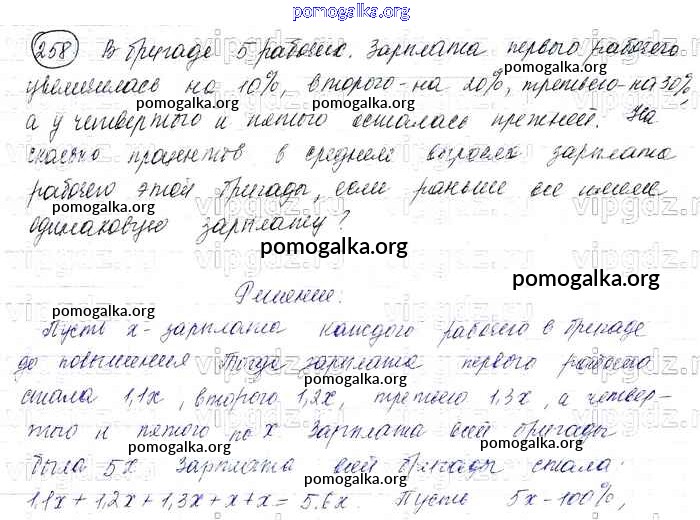 pomogalka.org
258 В бригаде 5 рабочих. Зарплата первого рабочего
увеличилась на 10%, второго - на 20%, третьего - на 30%,
pomogalka.org pomogalka.org
а у четвертого и пятого осталась прежней. На
сколько процентов в среднем выросла зарплата
pomogalka.org pomogalka.org
рабочего этой бригады, если раньше все имели
одинаковую зарплату?
pomogalka.org
pomogalka.org
Решение:
Пусть x - зарплата каждого рабочего в бригаде
pomogalka.org
до повышения Тогда зарплата первого рабочего
pomogalka.org
стала 1,1x, второго 1,2x, третьего 1,3x, а четвер-
того и пятого по x Зарплата всей бригады
pomogalka.org pomogalka.org
была 5x Зарплата всей бригады стала:
pomogalka.org
1,1x + 1,2x + 1,3x + x + x = 5.6x. Пусть 5x - 100%,